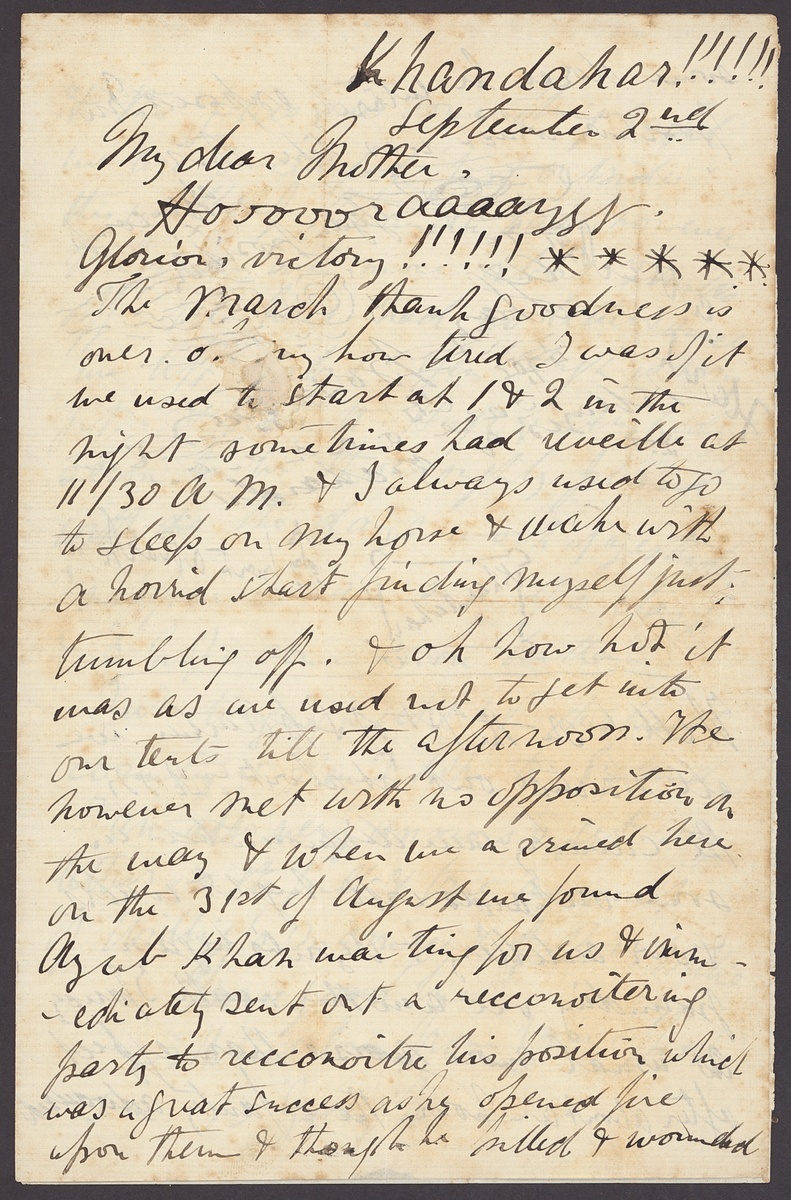 Khandahar!!!!!!
September 2nd
My dear Mother.
Hoooooraaaaayyy.
Glorious victory!!!!!! * * * * *
The March thank goodness is
over. oh my how tired I was of it
we used to start at 1 & 2 in the
night sometimes had reveille at
11/30 A M. & I always used to go
to sleep on my horse & wake with
a horrid start finding myself just
tumbling off. & oh how hot it
was as we used not to get into
our tents till the afternoon. We
however met with no opposition on
the way & when we arrived here
on the 31st of August we found
Ayub Khan waiting for us & imm-
-ediately sent out a recconoitering
party to recconoitre his position which
was a great success as he opened fire
upon them & though he killed & wounded